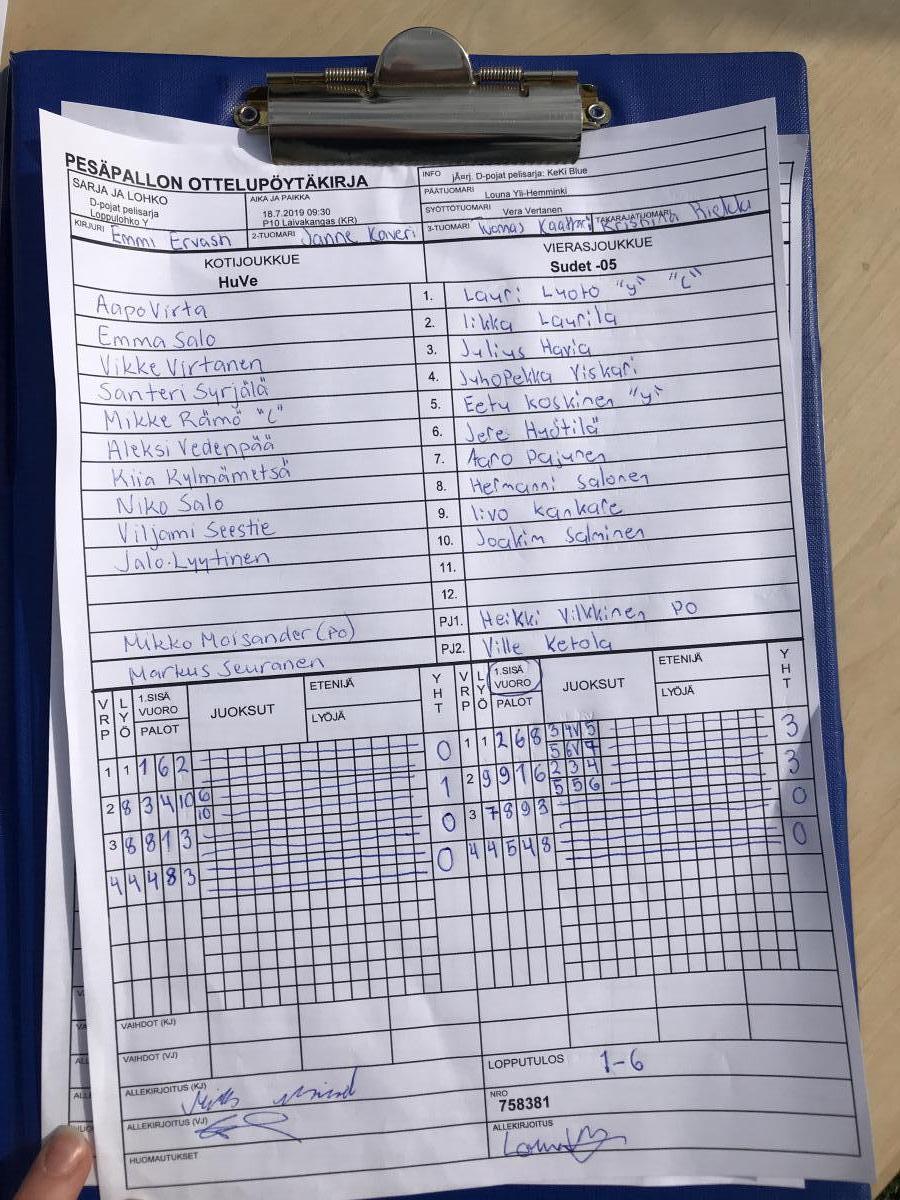 PESÄPALLON OTTELUPÖYTÄKIRJA
SARJA JA LOHKO
D-pojat pelisarja
Loppulohko Y
AIKA JA PAIKKA
18.7.2019 09:30
P10 Laivakangas (KR)
INFO jÄärj. D-pojat pelisarja: KeKi Blue
PÄÄTUOMARI Louna Yli-Hemminki
SYÖTTÖTUOMARI Vera Vertanen
KIRJURI Emmi Ervasti
2-TUOMARI Janne Kaveri
3-TUOMARI Tuomas
TAKARAJATUOMARI Kristiina
KOTIJOUKKUE
HuVe
VIERASJOUKKUE
Sudet -05
Aapo Virta 1. Lauri Luoto "y" "L"
Emma Salo 2. Iikka Laurila
Vikke Virtanen 3. Julius Havia
Santeri Syrjälä 4. JuhoPekka Viskari
Mikke Rämö "L" 5. Eetu Koskinen "y"
Aleksi Vedenpää 6. Jere Hyötilä
Kiia Kylmämetsä 7. Aaro Pajunen
Niko Salo 8. Hermanni Salonen
Viljami Seestie 9. Iivo Kankare
Jalo Lyytinen 10. Joakim Salminen
11.
12.
Mikko Moisander (PO) PJ1. Heikki Vilkkinen PO
Markus Seuranen PJ2. Ville Ketola
VRP LYÖ 1.SISÄ VUORO PALOT JUOKSUT ETENIJÄ LYÖJÄ YHT
VRP LYÖ 1.SISÄ VUORO PALOT JUOKSUT ETENIJÄ LYÖJÄ YHT
1 1 1 6 2 0
1 1 2 6 8 3 4V 5 3
5 6V 7
2 8 3 4 10 6 1
10
2 9 9 1 6 2 3 4 3
5 5 6
3 8 8 1 3 0
3 7 8 9 3 0
4 4 4 8 3 0
4 4 5 4 8 0
VAIHDOT (KJ)
VAIHDOT (VJ)
LOPPUTULOS 1-6
ALLEKIRJOITUS (KJ)
NRO
758381
ALLEKIRJOITUS (VJ)
ALLEKIRJOITUS
HUOMAUTUKSET